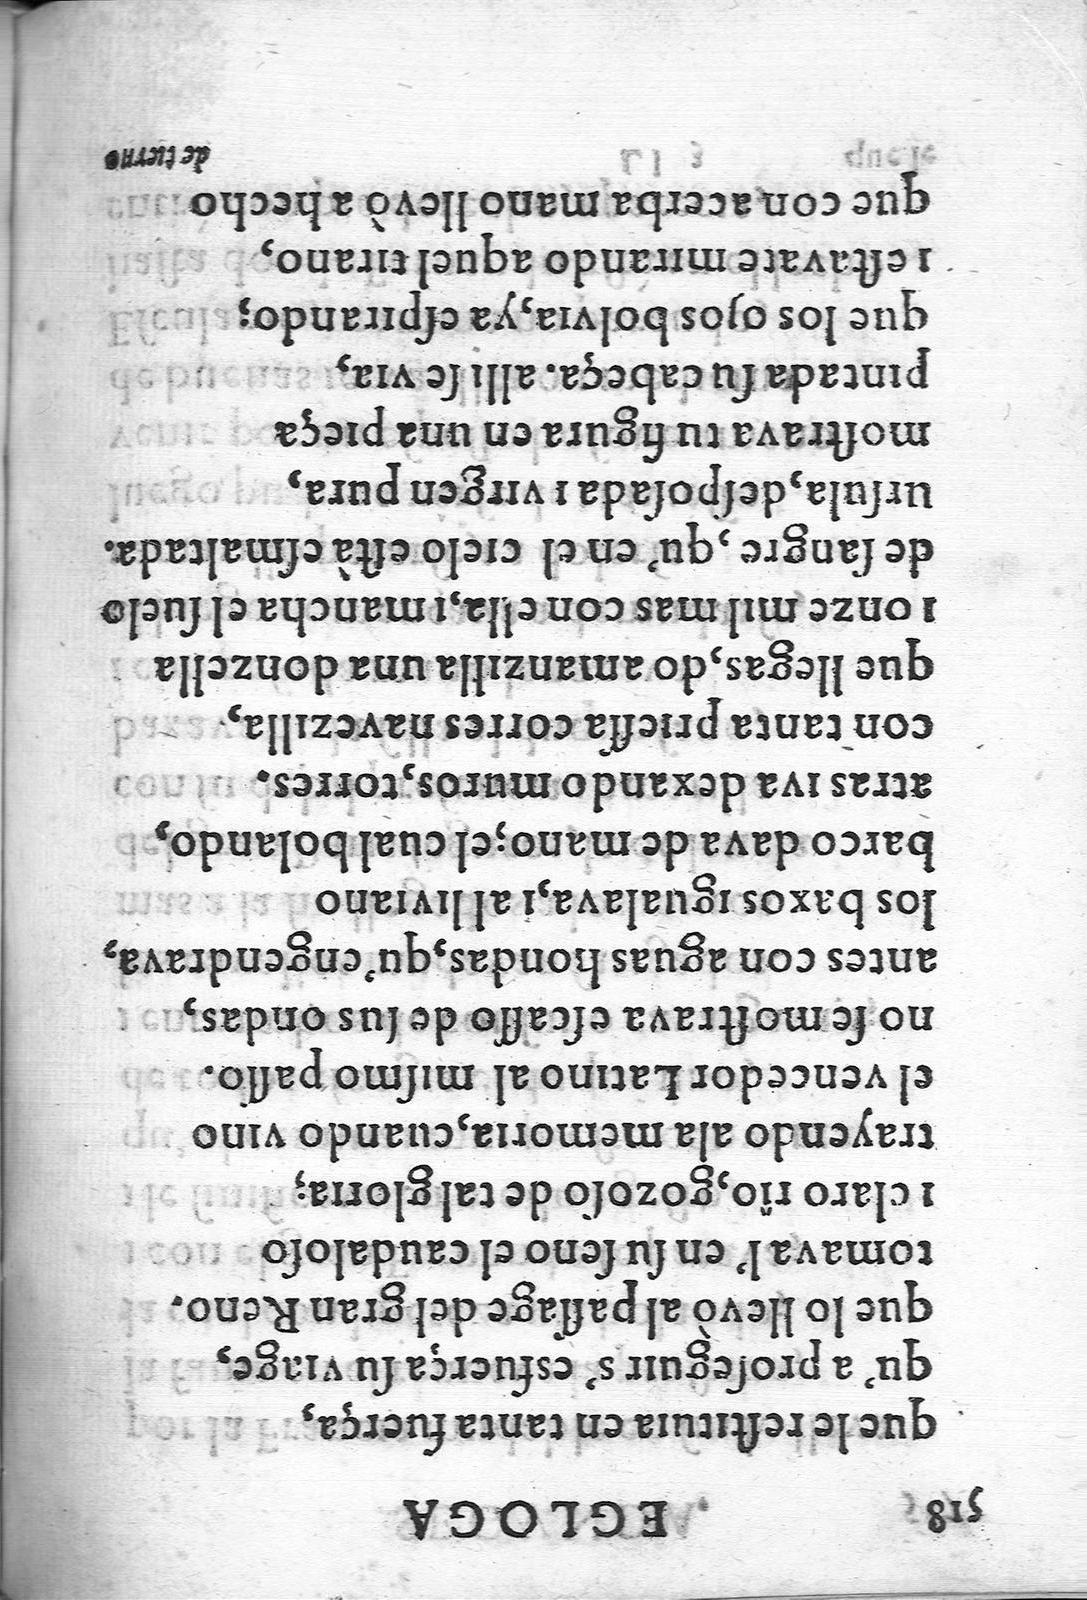 518 EGLOGA
que le reſtituia en tanta fuerça,
qu' a proſeguir s' esfuerça ſu viage,
que lo llevò al paſſage del gran Reno.
tomaval' en ſu ſeno el caudaloſo
i claro rio, gozoſo de tal gloria;
trayendo ala memoria, cuando vino
el vencedor Latino al miſmo paſſo.
no ſe moſtrava eſcaſſo de ſus ondas,
antes con aguas hondas, qu' engendrava,
los baxos igualava, i al liviano
barco dava de mano; el cual bolando,
atras iva dexando muros, torres.
con tanta prieſſa corres navezilla,
que llegas, do amanzilla una donzella
i onze mil mas con ella, i mancha el ſuelo
de ſangre, qu' en el cielo eſtà eſmaltada.
urſula, deſpoſada i virgen pura,
moſtrava tu figura en una pieça
pintada ſu cabeça. alli ſe via,
que los ojos bolvia, ya eſpirando;
i eſtavate mirando aquel tirano,
que con acerba mano llevò a hecho
de tierno